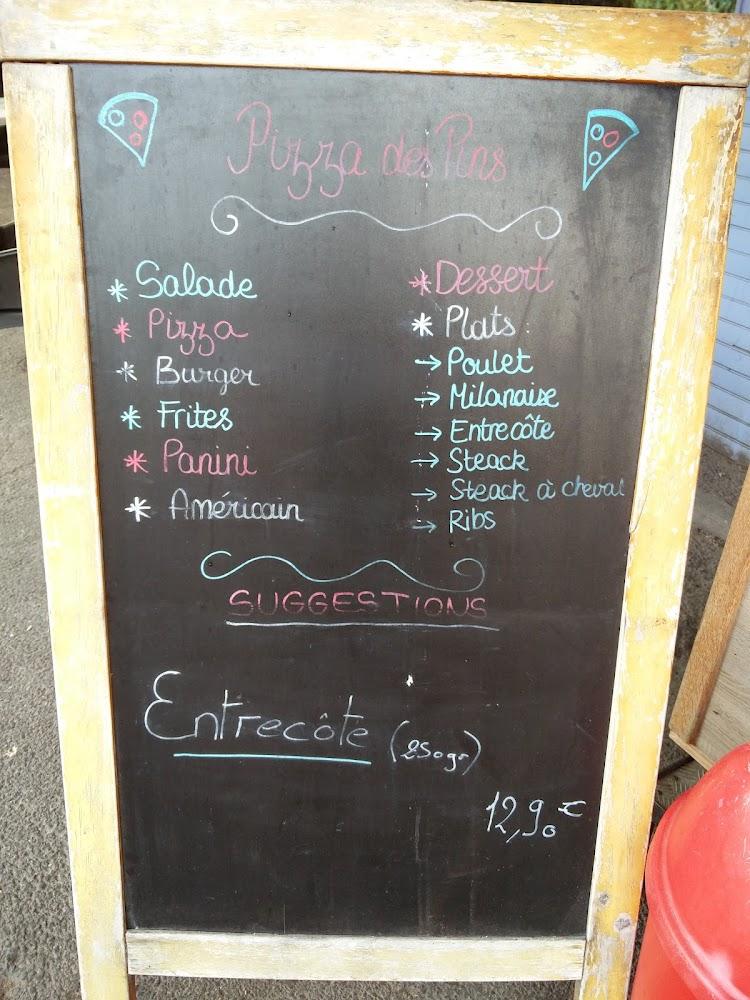 Pizza des Pins
* Salade
* Pizza
* Burger
* Frites
* Panini
* Américain
* Dessert
* Plats :
→ Poulet
→ Milanaise
→ Entrecôte
→ Steack
→ Steack à cheval
→ Ribs
SUGGESTIONS
Entrecôte (250gr)
12,90€